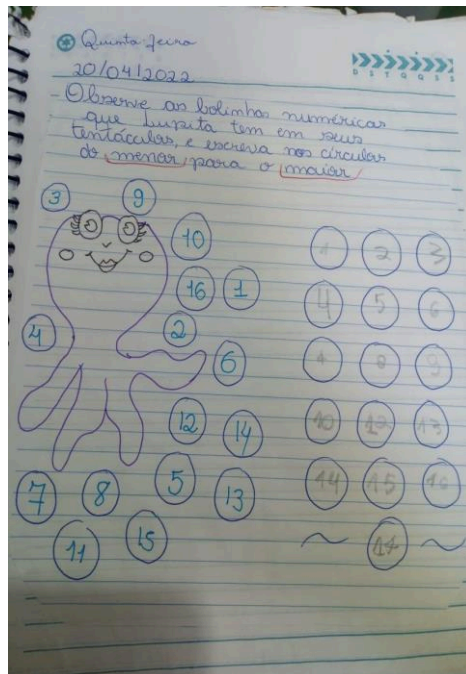 Quinta-feira
D S T Q Q S S
20/04/2022
Observe as bolinhas numéricas
que Lupita tem em seus
tentáculos, e escreva nos círculos
do menor, para o maior,
3 9
10
16 1
2
4
6
12 14
7 8 5 13
11 15
1 2 3
4 5 6
8 9
10 12 13
14 15 16
17